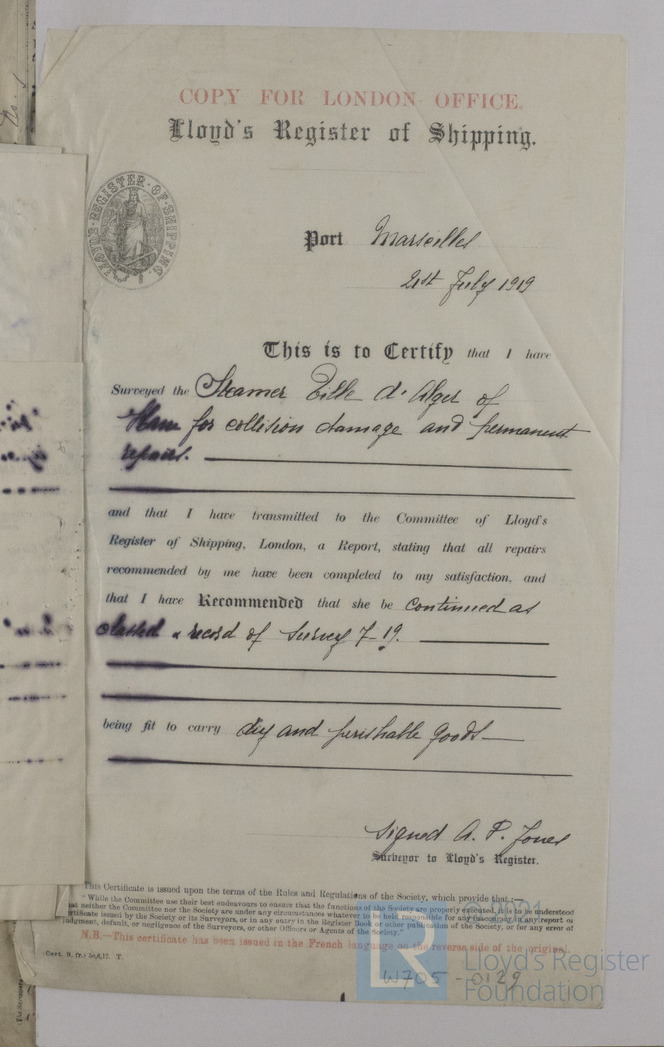 COPY FOR LONDON OFFICE.
Lloyd's Register of Shipping.
LLOYD'S REGISTER OF SHIPPING.
Port Marseilles
21st July 1919
This is to Certify that I have
Surveyed the Steamer Ville d'Alger of
for collision damage and permanent
repairs.
and that I have transmitted to the Committee of Lloyd's
Register of Shipping, London, a Report, stating that all repairs
recommended by me have been completed to my satisfaction, and
that I have Recommended that she be continued as
classed a record of Survey 7-19.
being fit to carry dry and perishable goods
Signed A. P. Jones
Surveyor to Lloyd's Register.
This Certificate is issued upon the terms of the Rules and Regulations of the Society, which provide that :—
"While the Committee use their best endeavours to ensure that the functions of the Society are properly executed, it is to be understood
that neither the Committee nor the Society are under any circumstances whatever to be held responsible for any inaccuracy in any report or
certificate issued by the Society or its Surveyors, or in any entry in the Register Book or other publication of the Society, or for any error of
judgment, default, or negligence of the Surveyors, or other Officers or Agents of the Society."
N.B.—This certificate has been issued in the French language on the reverse side of the original.
© 2021
LR
Lloyd's Register
Foundation
W705-0129